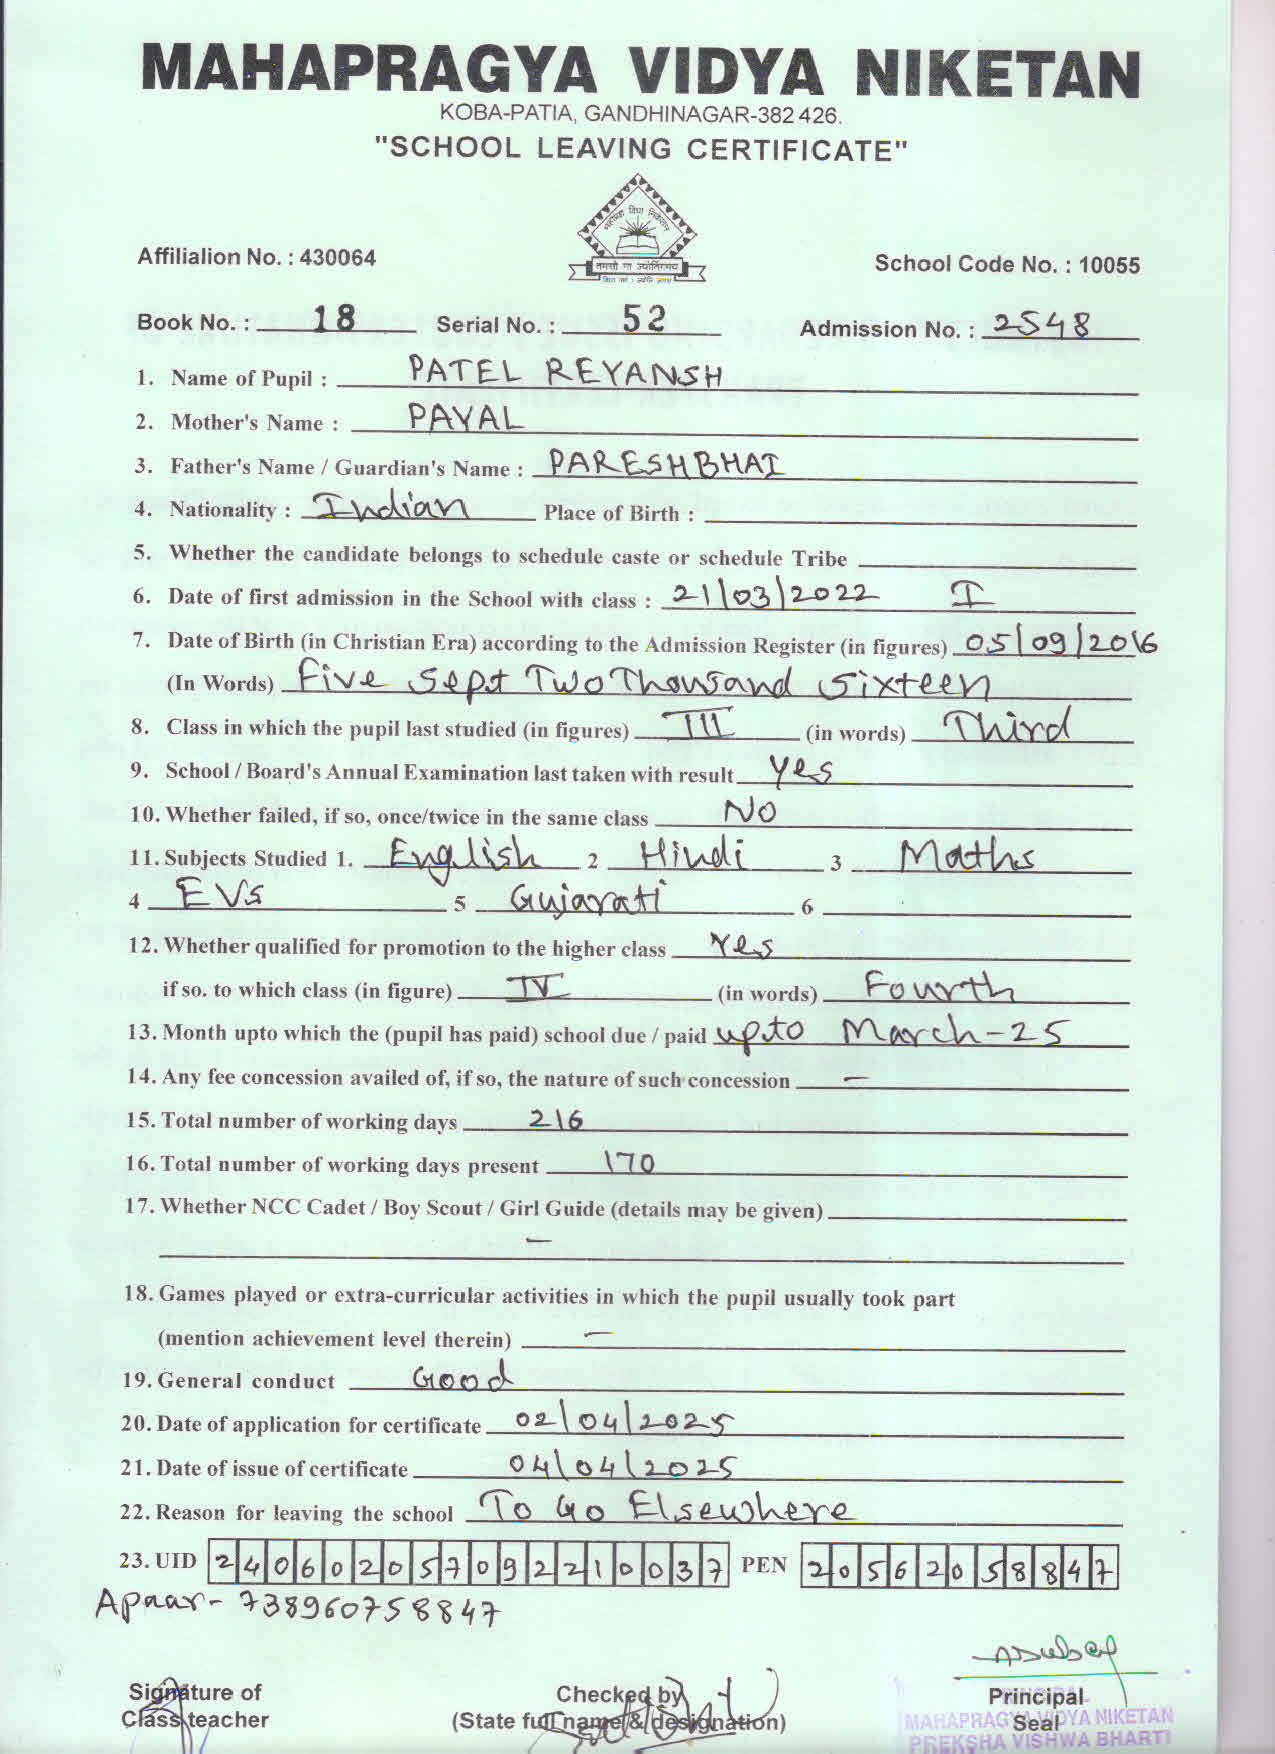 MAHAPRAGYA VIDYA NIKETAN
KOBA-PATIA, GANDHINAGAR-382 426.
"SCHOOL LEAVING CERTIFICATE"
तमसो मा ज्योतिर्गमय
Affilialion No. : 430064
School Code No. : 10055
Book No. : 18 Serial No. : 52 Admission No. : 2548
1. Name of Pupil : PATEL REYANSH
2. Mother's Name : PAYAL
3. Father's Name / Guardian's Name : PARESHBHAI
4. Nationality : Indian Place of Birth :
5. Whether the candidate belongs to schedule caste or schedule Tribe
6. Date of first admission in the School with class : 21/03/2022 I
7. Date of Birth (in Christian Era) according to the Admission Register (in figures) 05/09/2016
(In Words) Five Sept Two Thousand Sixteen
8. Class in which the pupil last studied (in figures) III (in words) Third
9. School / Board's Annual Examination last taken with result Yes
10. Whether failed, if so, once/twice in the same class NO
11. Subjects Studied 1. English 2 Hindi 3 Maths
4 EVS 5 Gujarati 6
12. Whether qualified for promotion to the higher class Yes
if so. to which class (in figure) IV (in words) Fourth
13. Month upto which the (pupil has paid) school due / paid upto March-25
14. Any fee concession availed of, if so, the nature of such concession —
15. Total number of working days 216
16. Total number of working days present 170
17. Whether NCC Cadet / Boy Scout / Girl Guide (details may be given)
—
18. Games played or extra-curricular activities in which the pupil usually took part
(mention achievement level therein) —
19. General conduct Good
20. Date of application for certificate 02/04/2025
21. Date of issue of certificate 04/04/2025
22. Reason for leaving the school To Go Elsewhere
23. UID 240602057092210037 PEN 20562058847
Apaar- 738960758847
Signature of
Class teacher
Checked by
(State full name & designation)
Principal
Seal
PRINCIPAL
MAHAPRAGYA VIDYA NIKETAN
PREKSHA VISHWA BHARTI